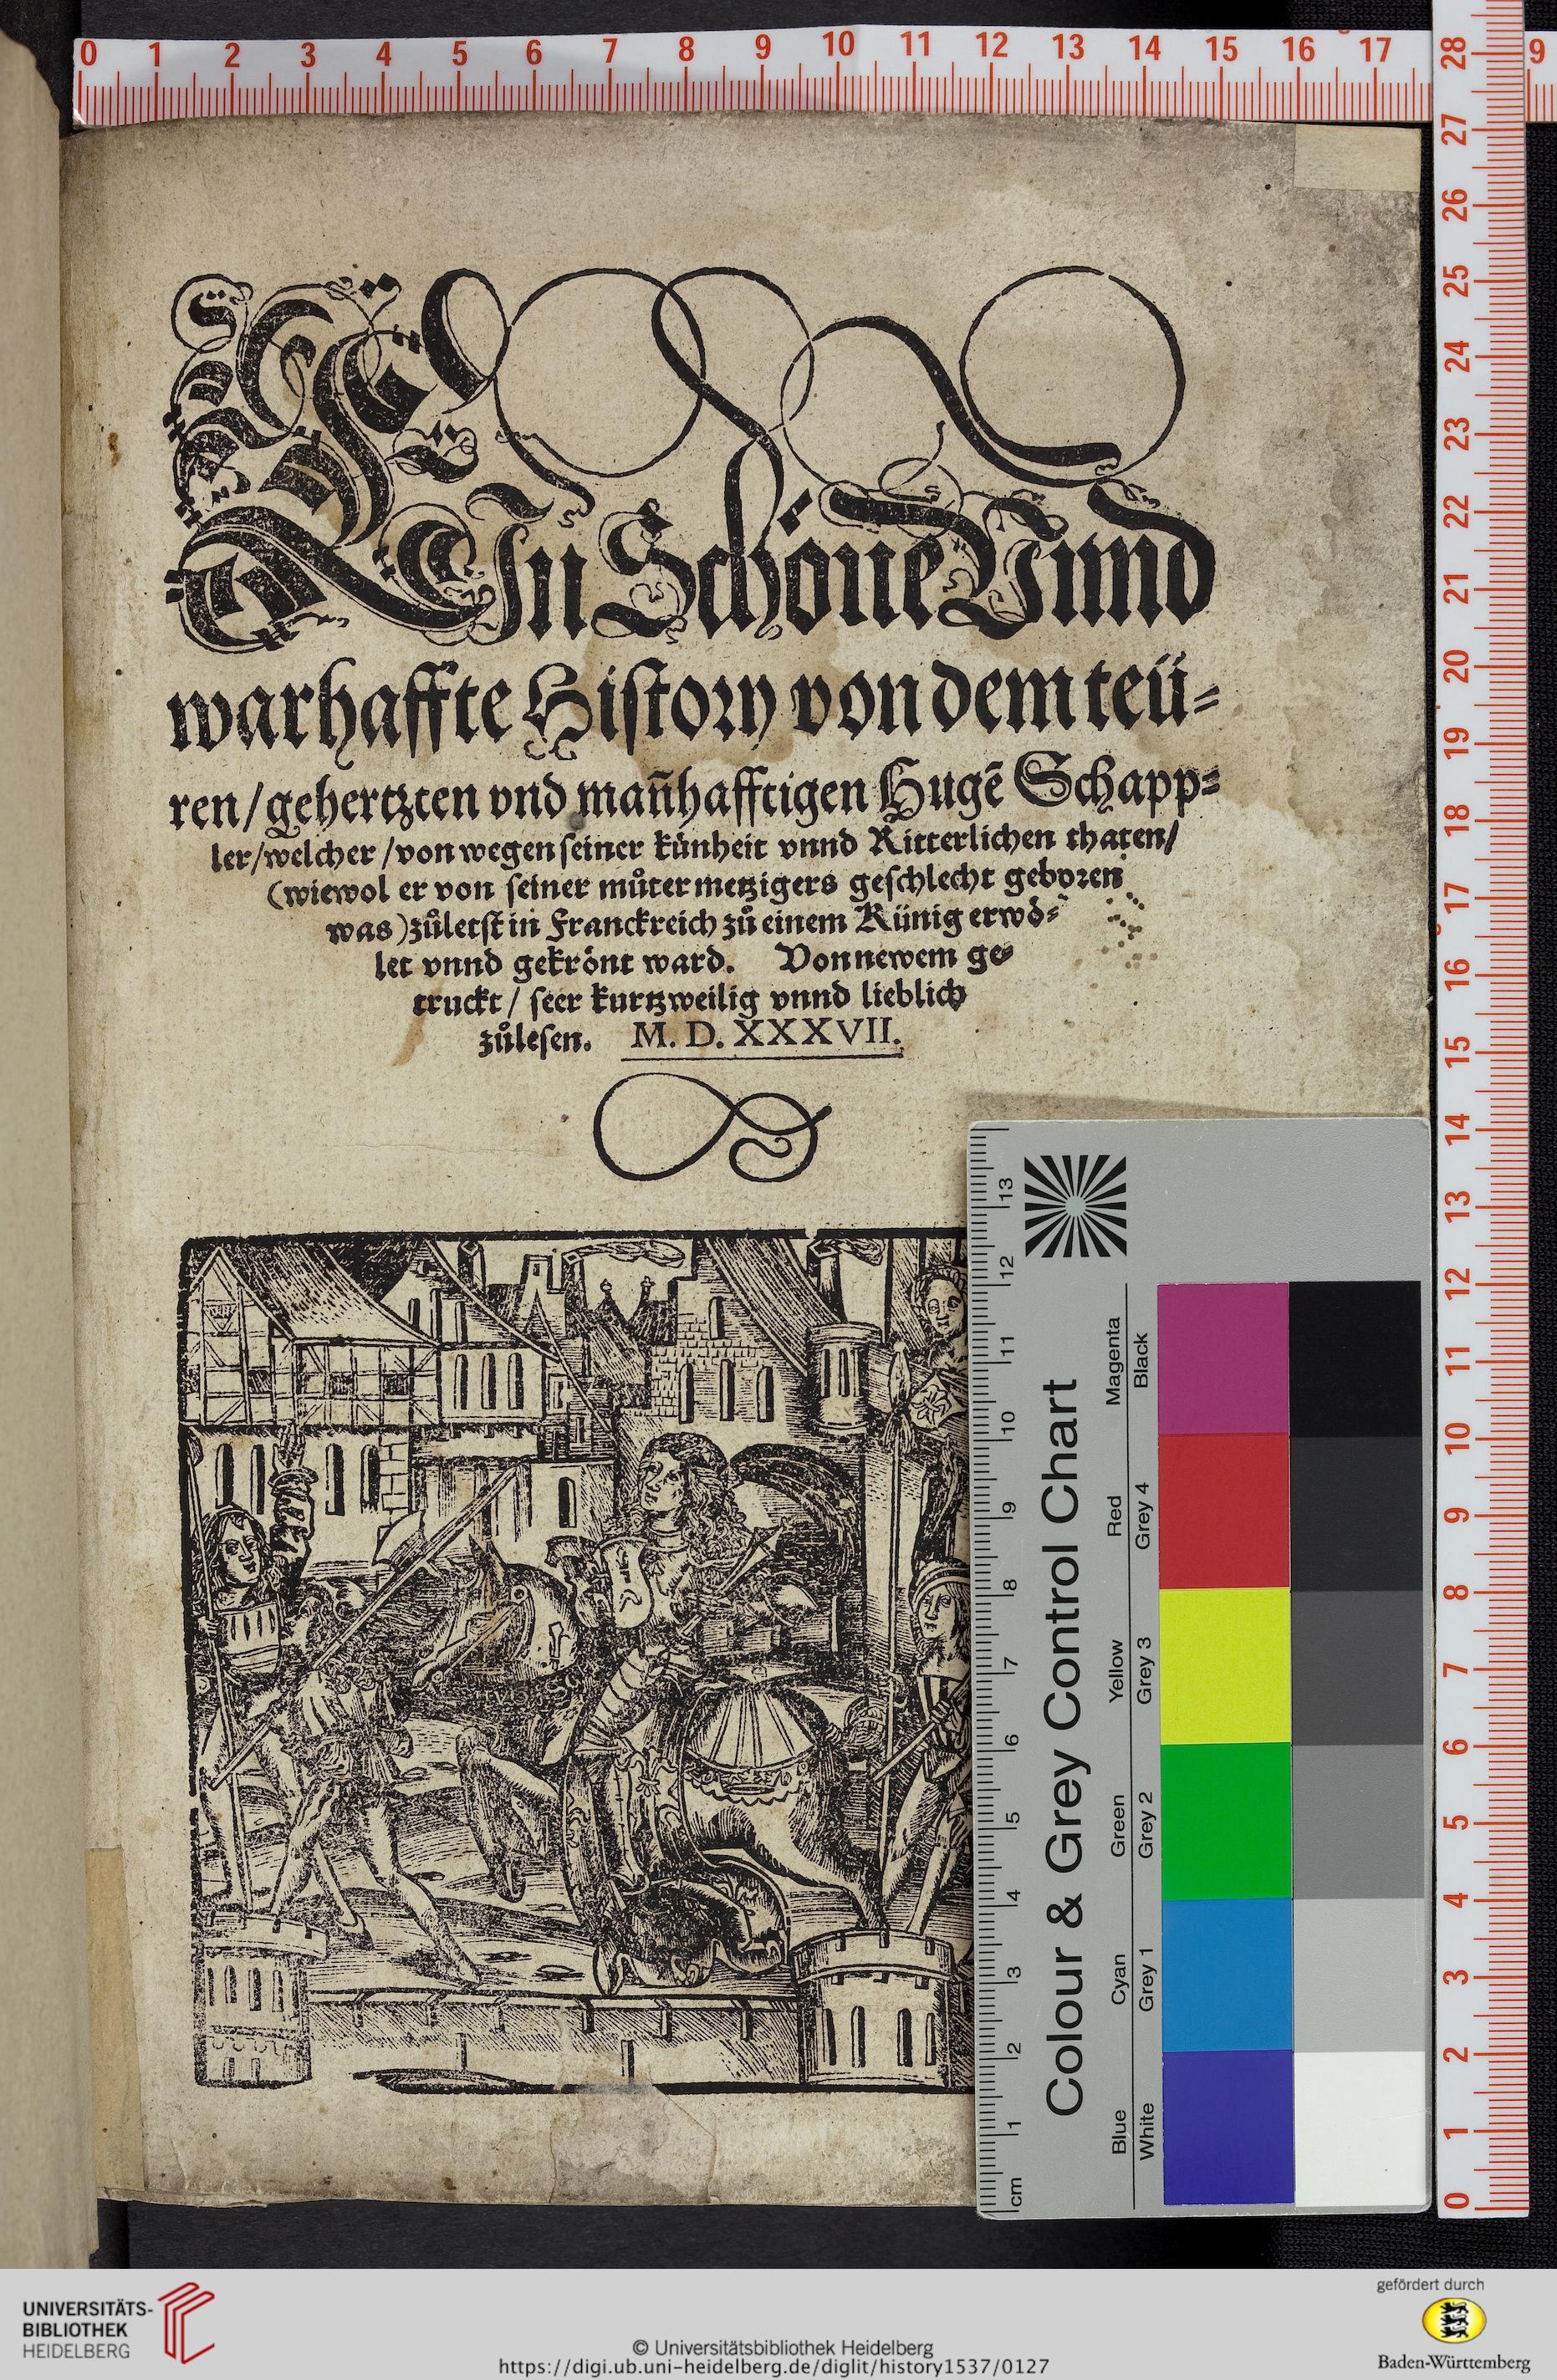 EIn Schöne Vnnd
warhaffte History von dem teü-
ren/gehertzten vnd man̄hafftigen Hugē Schapp-
ler/welcher/von wegen seiner künheit vnnd Ritterlichen thaten/
(wiewol er von seiner můter metzigers geschlecht geboren
was)zůletst in Franckreich zů einem Künig erwö-
let vnnd gekrönt ward. Von newem ge-
truckt/ seer kurtzweilig vnnd lieblich
zůlesen. M. D. XXXVII.
0 1 2 3 4 5 6 7 8 9 10 11 12 13 14 15 16 17 9
28
27
26
25
24
23
22
21
20
19
18
17
16
15
14
13
12
11
10
9
8
7
6
5
4
3
2
1
0
Colour & Grey Control Chart
Blue Cyan Green Yellow Red Magenta
White Grey 1 Grey 2 Grey 3 Grey 4 Black
cm 1 2 3 4 5 6 7 8 9 10 11 12 13
UNIVERSITÄTS-
BIBLIOTHEK
HEIDELBERG
© Universitätsbibliothek Heidelberg
https://digi.ub.uni-heidelberg.de/diglit/history1537/0127
gefördert durch
Baden-Württemberg